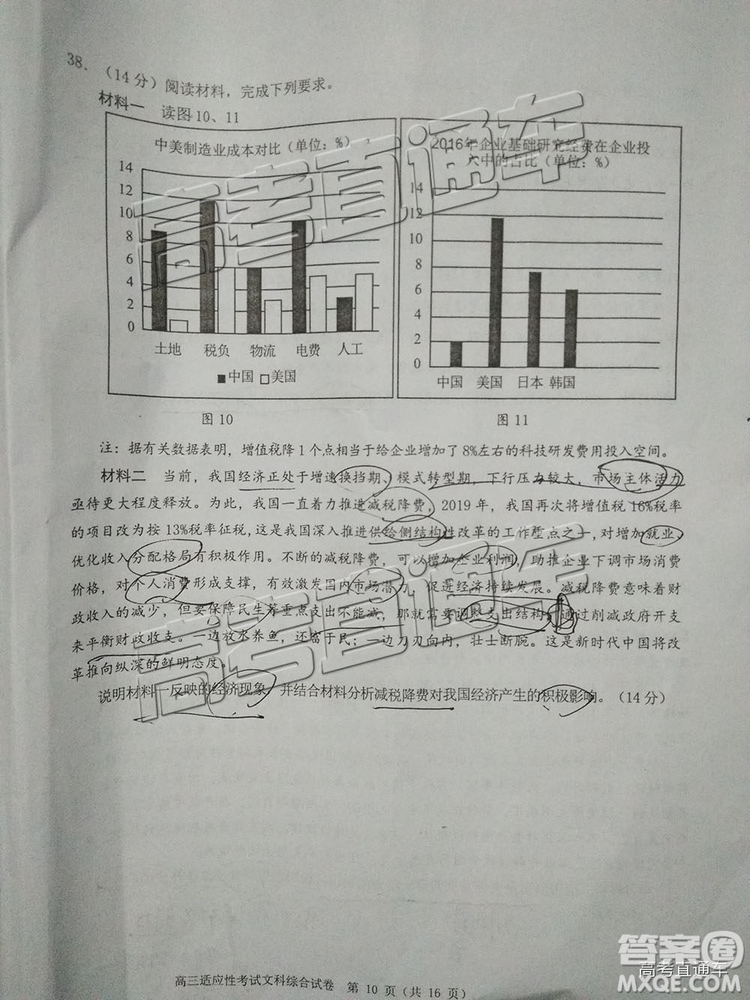 38. （14分）阅读材料，完成下列要求。
材料一 读图10、11
中美制造业成本对比（单位：%）
14
12
10
8
6
4
2
0
土地 税负 物流 电费 人工
■中国 □美国
图10
2016年企业基础研究经费在企业投
入中的占比（单位：%）
14
12
10
8
6
4
2
0
中国 美国 日本 韩国
图11
注：据有关数据表明，增值税降1个点相当于给企业增加了8%左右的科技研发费用投入空间。
材料二 当前，我国经济正处于增速换挡期、模式转型期，下行压力较大，市场主体活力
亟待更大程度释放。为此，我国一直着力推进减税降费，2019年，我国再次将增值税16%税率
的项目改为按13%税率征税，这是我国深入推进供给侧结构性改革的工作重点之一，对增加就业、
优化收入分配格局有积极作用。不断的减税降费，可以增加企业利润，助推企业下调市场消费
价格，对个人消费形成支撑，有效激发国内市场潜力，促进经济持续发展。减税降费意味着财
政收入的减少，但要保障民生等重点支出不能减，那就需要调整支出结构，通过削减政府开支
来平衡财政收支。一边放水养鱼，还富于民；一边刀刃向内，壮士断腕。这是新时代中国将改
革推向纵深的鲜明态度。
说明材料一反映的经济现象，并结合材料分析减税降费对我国经济产生的积极影响。（14分）
高三适应性考试文科综合试卷 第10页（共16页）
高考直通车
高考直通车
答案圈
高考直通车
MXQE.COM